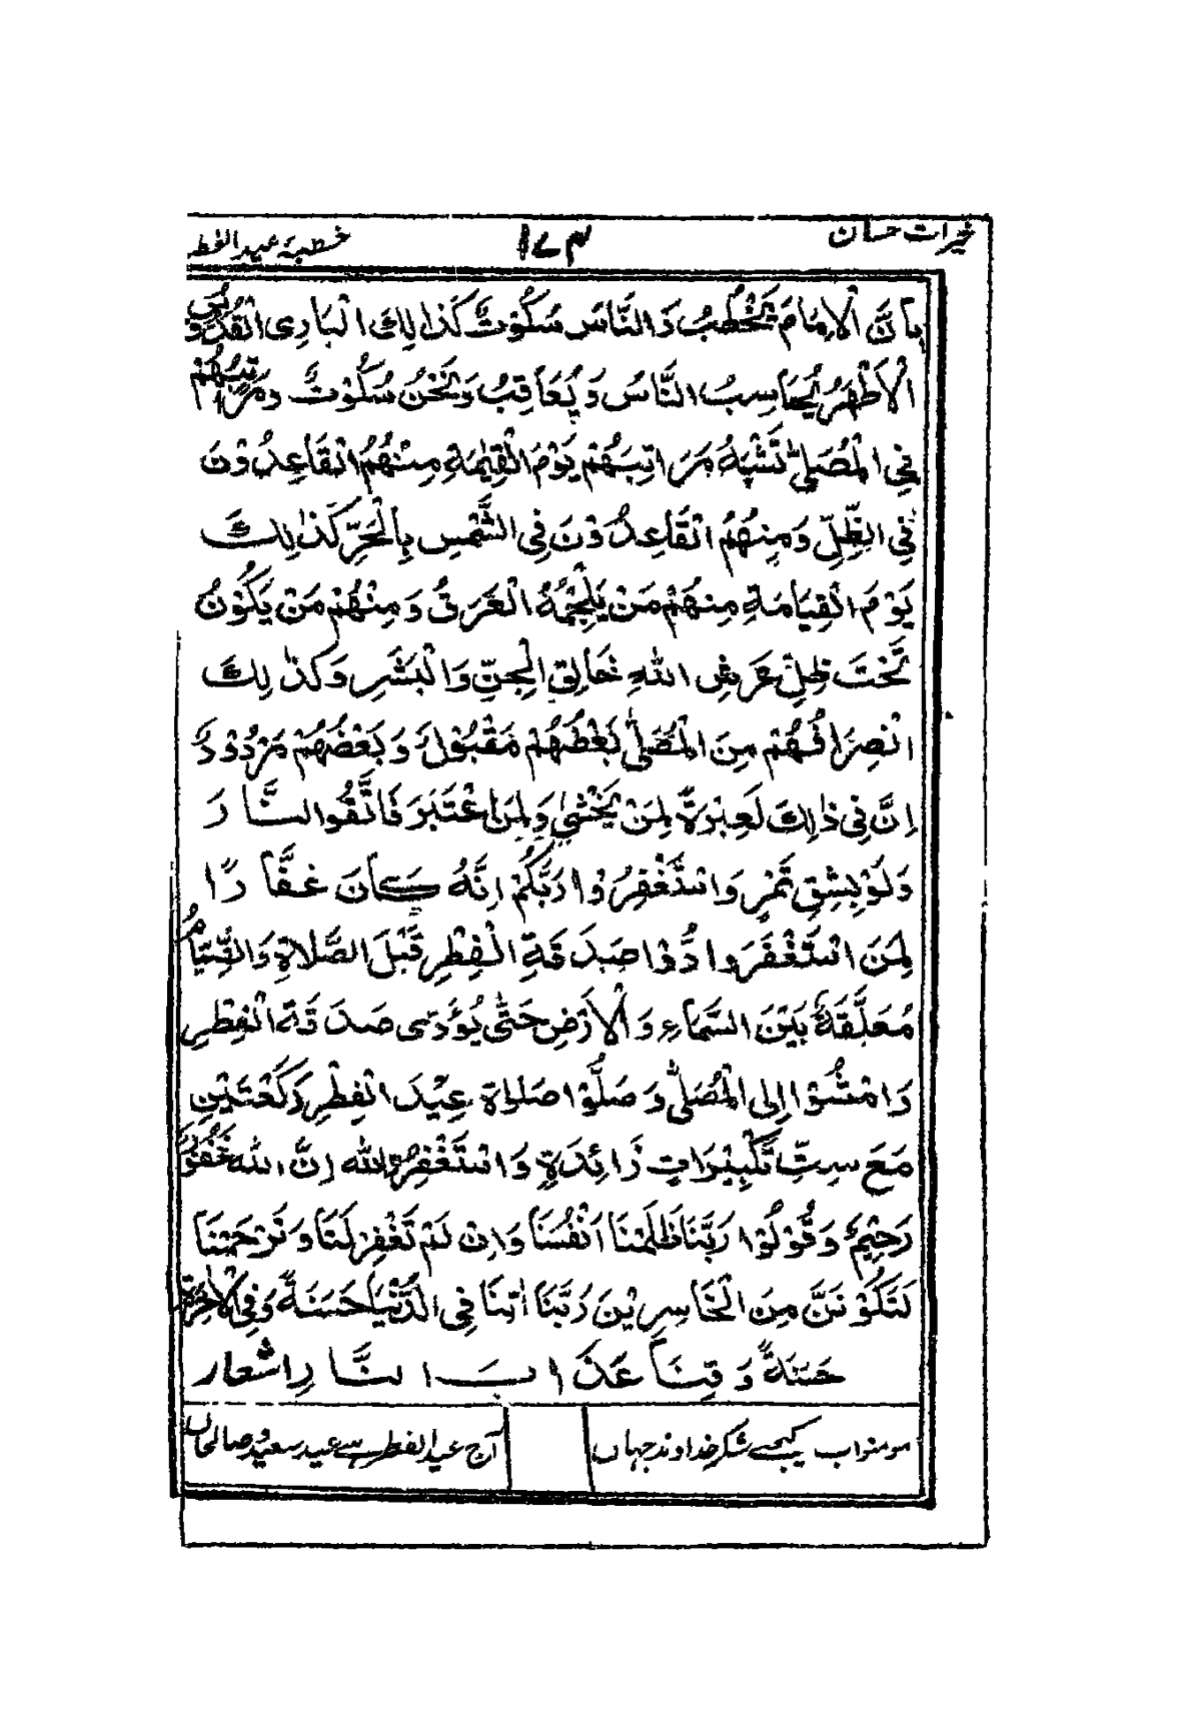 خیرات حسان ۱۷۳ خطبۂ عید الفطر
بِأَنَّ الْاِمَامَ يَخْطُبُ وَالنَّاسُ سُكُوْتٌ كَذَالِكَ الْبَارِى الْقُدُّوْسُ
الْاَطْهَرُ يُحَاسِبُ النَّاسَ وَيُعَاقِبُ وَنَحْنُ سُكُوْتٌ وَمَرَاتِبُهُمْ
فِي الْمُصَلّٰى تَشْبَهُ مَرَاتِبَهُمْ يَوْمَ الْقِيٰمَةِ مِنْهُمُ الْقَاعِدُوْنَ
فِي الظِّلِّ وَمِنْهُمُ الْقَاعِدُوْنَ فِى الشَّمْسِ بِالْحَرِّ كَذٰلِكَ
يَوْمَ الْقِيَامَةِ مِنْهُمْ مَنْ يُلْجِمُهُ الْعَرَقُ وَمِنْهُمْ مَنْ يَكُوْنُ
تَحْتَ ظِلِّ عَرَشِ اللّٰهِ خَالِقِ الْجِنِّ وَالْبَشَرِ وَكَذٰلِكَ
انْصِرَافُهُمْ مِنَ الْمُصَلّٰى بَعْضُهُمْ مَقْبُوْلٌ وَبَعْضُهُمْ مَرْدُوْدٌ
اِنَّ فِى ذٰلِكَ لَعِبْرَةً لِمَنْ يَخْشٰى وَلِمَنِ اعْتَبَرَ فَاتَّقُوا النَّارَ
وَلَوْ بِشِقِّ تَمْرٍ وَاسْتَغْفِرُوْا رَبَّكُمْ اِنَّهُ كَانَ غَفَّارًا
لِمَنِ اسْتَغْفَرَ وَاَدُّوْا صَدَقَةِ الْفِطْرِ قَبْلَ الصَّلَاةِ وَالصِّيَامُ
مُعَلَّقَةٌ بَيْنَ السَّمَاءِ وَالْاَرْضِ حَتّٰى يُؤَدّٰى صَدَقَةُ الْفِطْرِ
وَامْشُوْا اِلَى الْمُصَلّٰى وَصَلُّوْا صَلٰوةَ عِيْدِ الْفِطْرِ رَكْعَتَيْنِ
مَعَ سِتِّ تَكْبِيْرَاتٍ زَائِدَةٍ وَاسْتَغْفِرُوا اللّٰه اِنَّ اللّٰه غَفُوْرٌ
رَحِيْمٌ وَقُوْلُوْا رَبَّنَا ظَلَمْنَا اَنْفُسَنَا وَاِنْ لَمْ تَغْفِرْ لَنَا وَتَرْحَمْنَا
لَنَكُوْنَنَّ مِنَ الْخَاسِرِيْنَ رَبَّنَا اٰتِنَا فِى الدُّنْيَا حَسَنَةً وَفِى الْاٰخِرَةِ
حَسَنَةً وَقِنَا عَذَابَ النَّارِ اشعار
مومنو اب کیجے شکر خداوند جہاں آج عید الفطر ہے عید سعید صالحاں